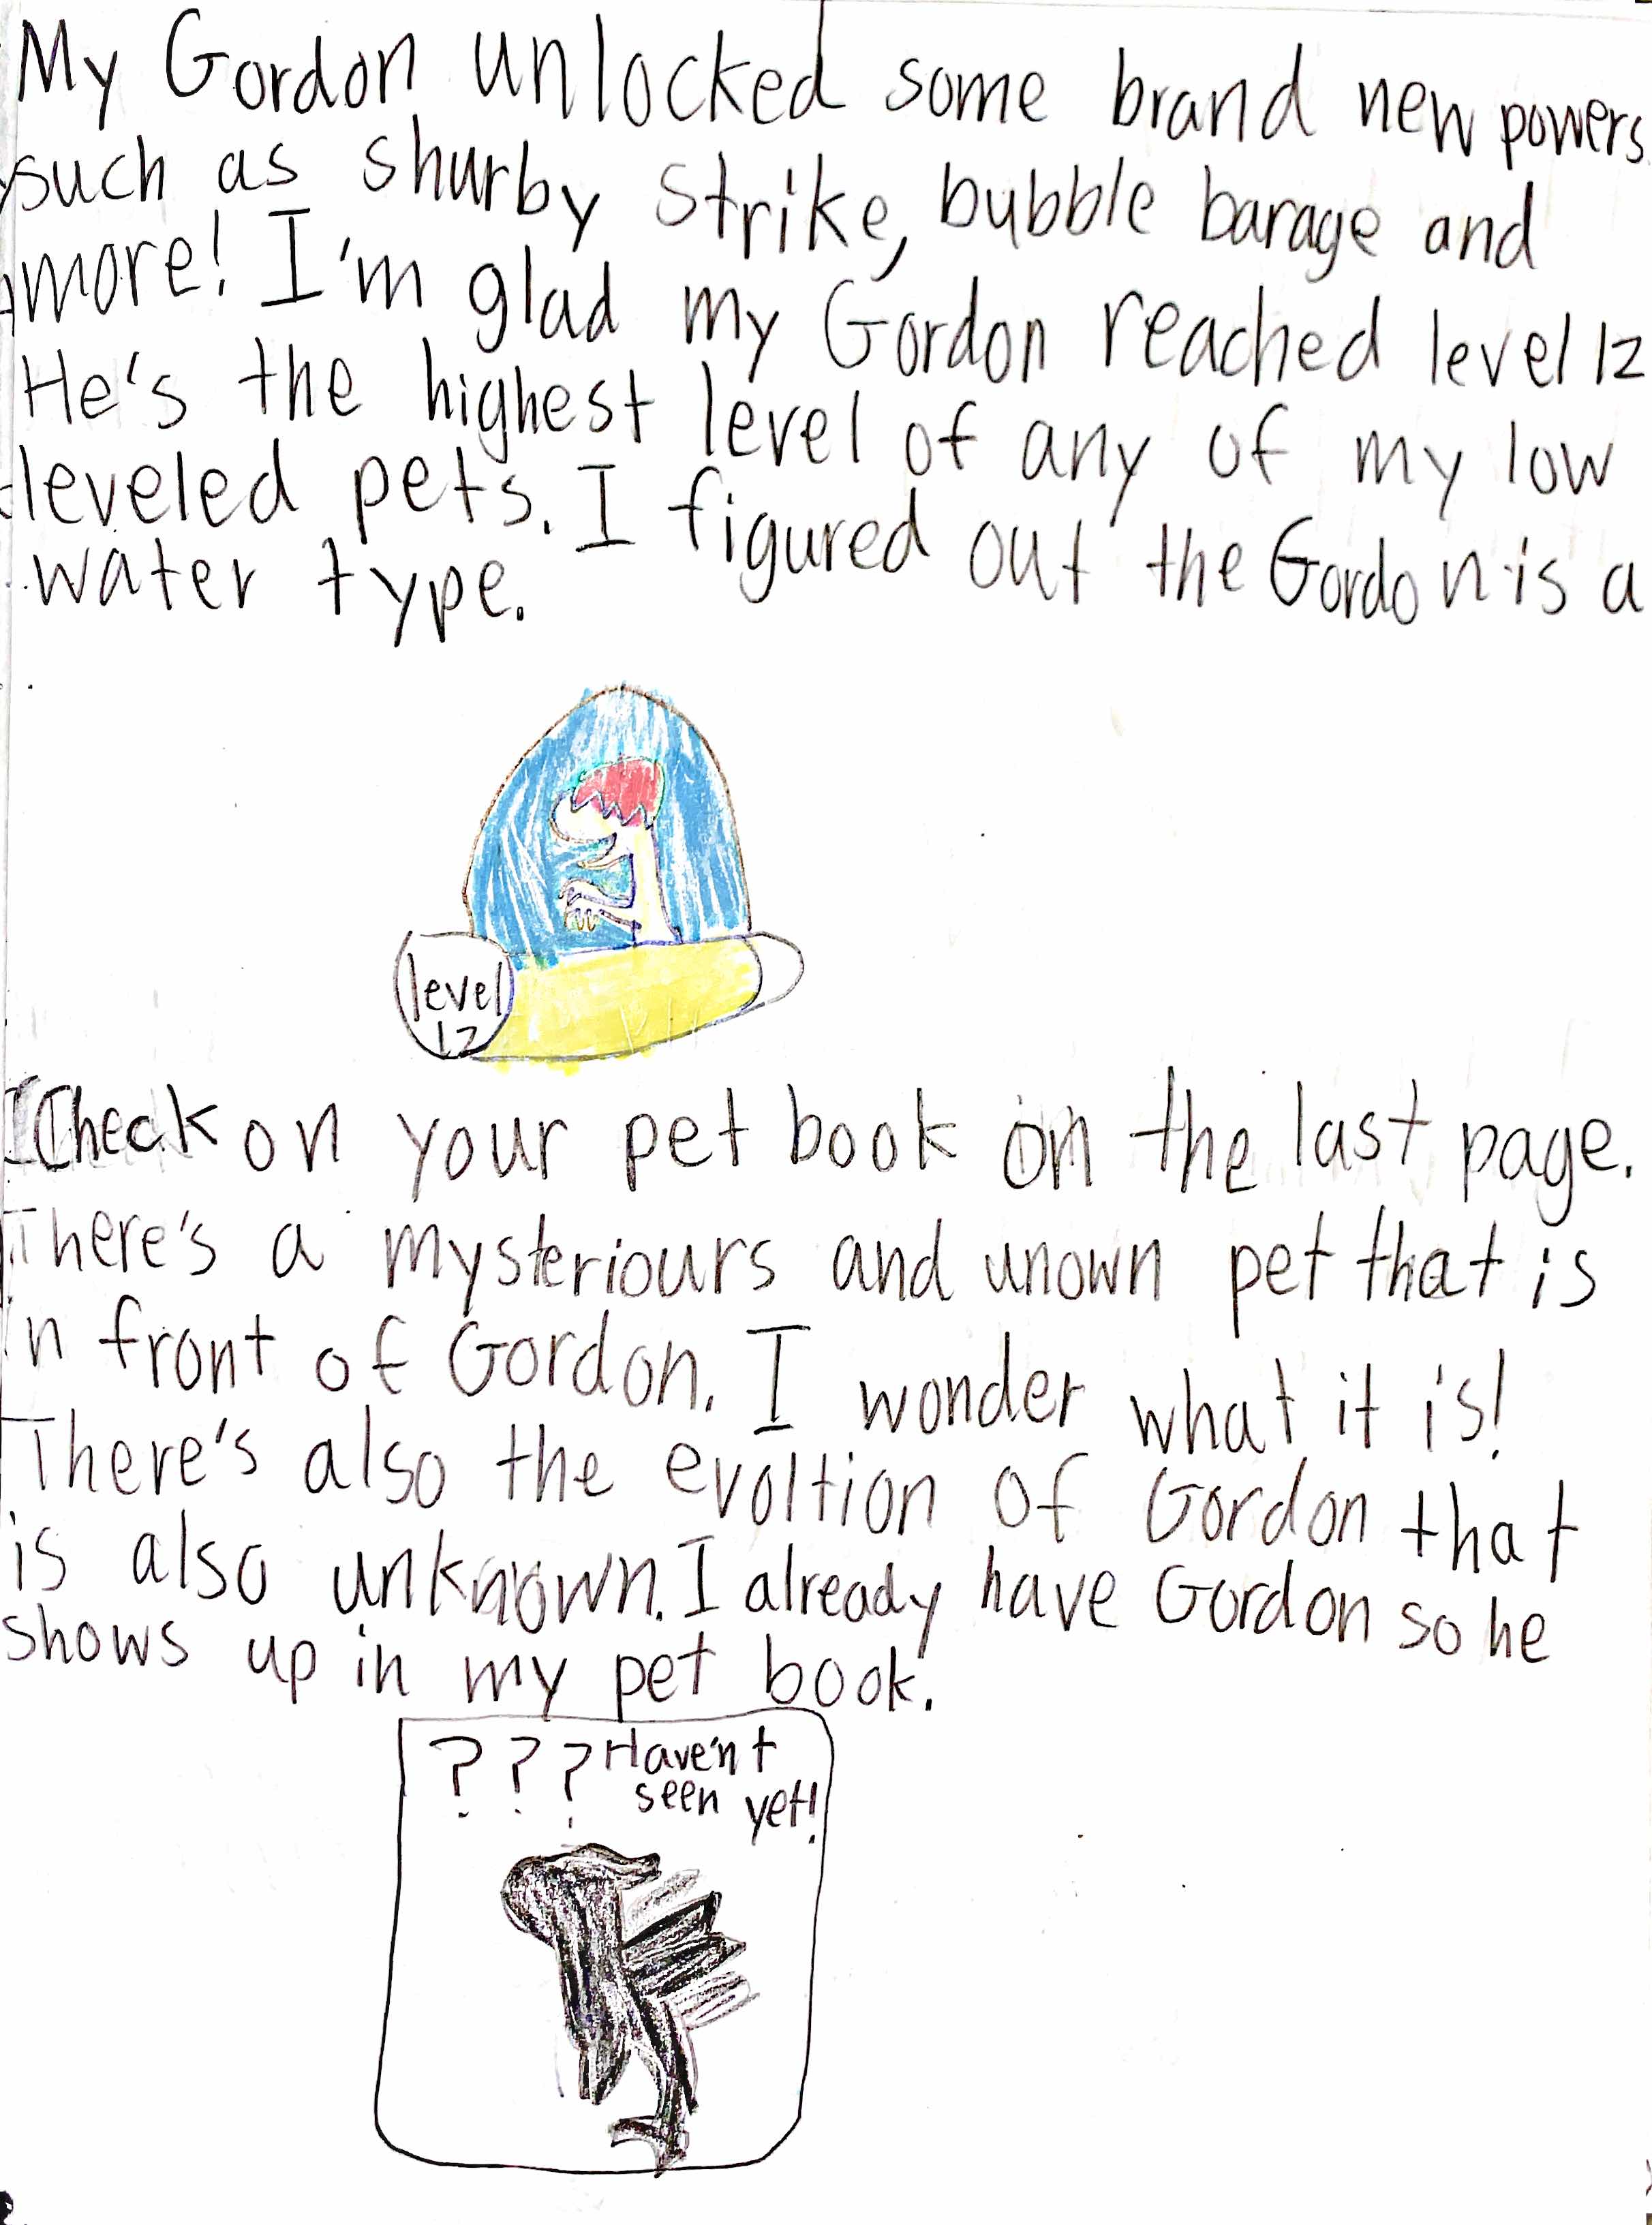 My Gordon unlocked some brand new powers
such as shurby strike, bubble barage and
more! I'm glad my Gordon reached level 12
He's the highest level of any of my low
leveled pets. I figured out the Gordon is a
water type.
level
12
Check on your pet book on the last page.
There's a mysteriours and unown pet that is
in front of Gordon. I wonder what it is!
There's also the evoltion of Gordon that
is also unknown. I already have Gordon so he
shows up in my pet book.
? ? ? Haven't
seen yet!